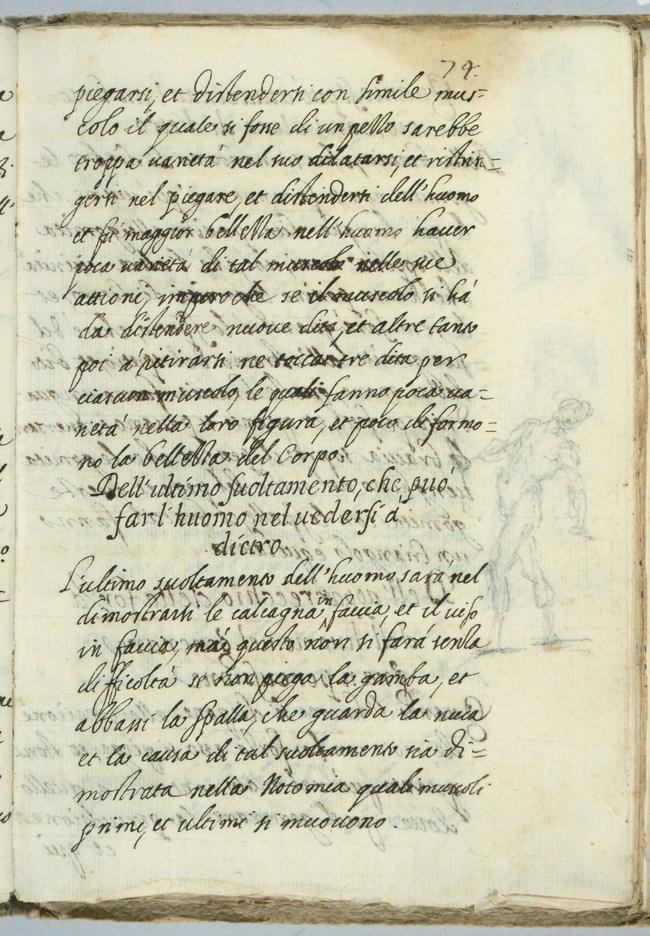 74.
piegarsi, et distendersi con simile mus=
colo il quale si fosse di un pezzo sarebbe
troppa varietà nel suo dilatarsi, et ristrin=
gersi nel piegare, et distendersi dell'huomo
et fù maggior bellezza nell'huomo haver
poca varietà di tal muscolo nelle sue
attioni, imperoche se il muscolo si hà
da distendere nuove dita, et altre tanto
poi à ritirarsi ne toccar tre dita per
ciascun muscolo, le quali fanno poca va=
rietà nella loro figura, et poco deformo=
no la bellezza del Corpo.
Dell'ultimo suoltamento, che può
far l'huomo nel vedersi à
dietro.
L'ultimo suoltamento dell'huomo sarà, nel
dimostrarsi le calcagna in faccia, et il viso
in faccia, mà questo non si farà senza
difficoltà se non piega la gamba, et
abbassi la spalla, che guarda la nuca
et la causa di tal suoltamento sia di=
mostrata nella Notomia quali muscoli
primi, et ultimi si muovono.